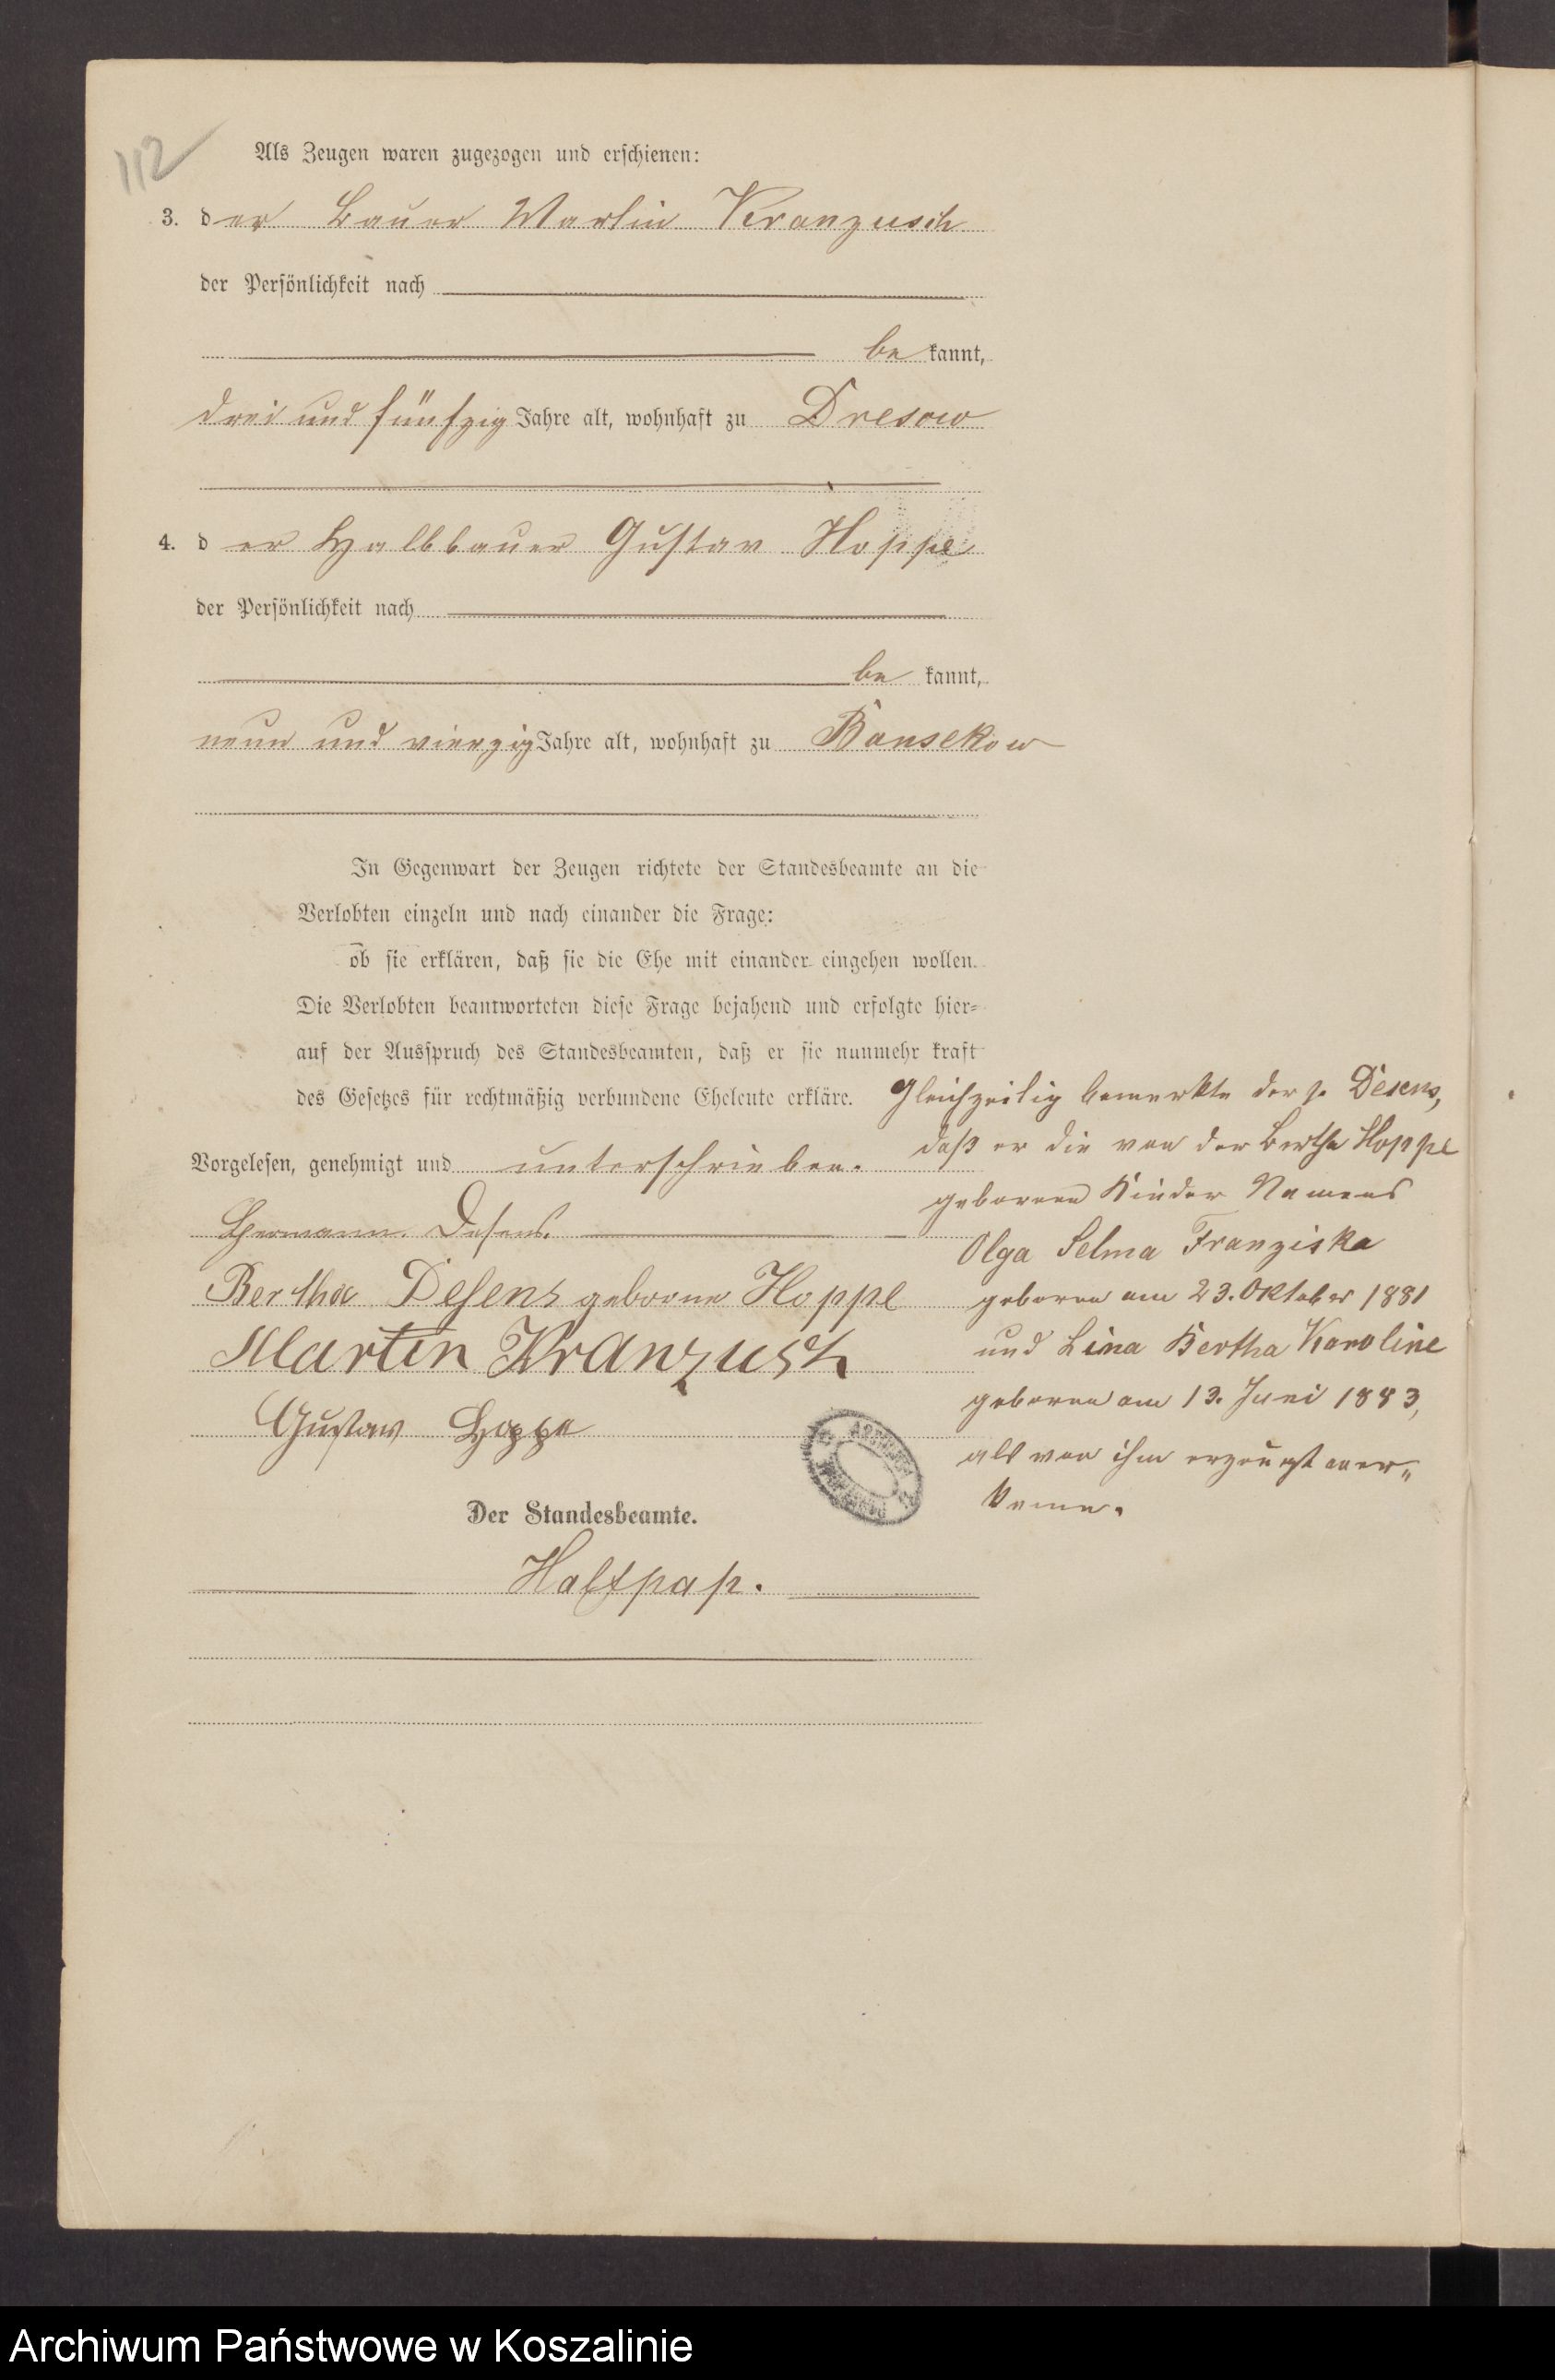 112
Als Zeugen waren zugezogen und erschienen:
3. der Bauer Martin Kranzusch
der Persönlichkeit nach
be kannt,
drei und fünfzig Jahre alt, wohnhaft zu Dresow
4. d er Halbbauer Gustav Hoppe
der Persönlichkeit nach
be kannt,
neun und vierzig Jahre alt, wohnhaft zu Bansekow
In Gegenwart der Zeugen richtete der Standesbeamte an die
Verlobten einzeln und nach einander die Frage:
ob sie erklären, daß sie die Ehe mit einander eingehen wollen.
Die Verlobten beantworteten diese Frage bejahend und erfolgte hier-
auf der Ausspruch des Standesbeamten, daß er sie nunmehr kraft
des Gesetzes für rechtmäßig verbundene Eheleute erkläre.
Vorgelesen, genehmigt und unterschrieben.
Hermann Desens.
Bertha Desens geborne Hoppe
Martin Kranzusch
Gustav Hoppe
Der Standesbeamte.
Haltpap.
Gleichzeitig bemerkte der p. Desens,
daß er die von der Bertha Hoppe
geborenen Kinder Namens
Olga Selma Franziska
geboren am 23. Oktober 1881
und Lina Bertha Karoline
geboren am 13. Juni 1883,
als von ihm erzeugt aner„
kenne.
Archiwum Państwowe w Koszalinie